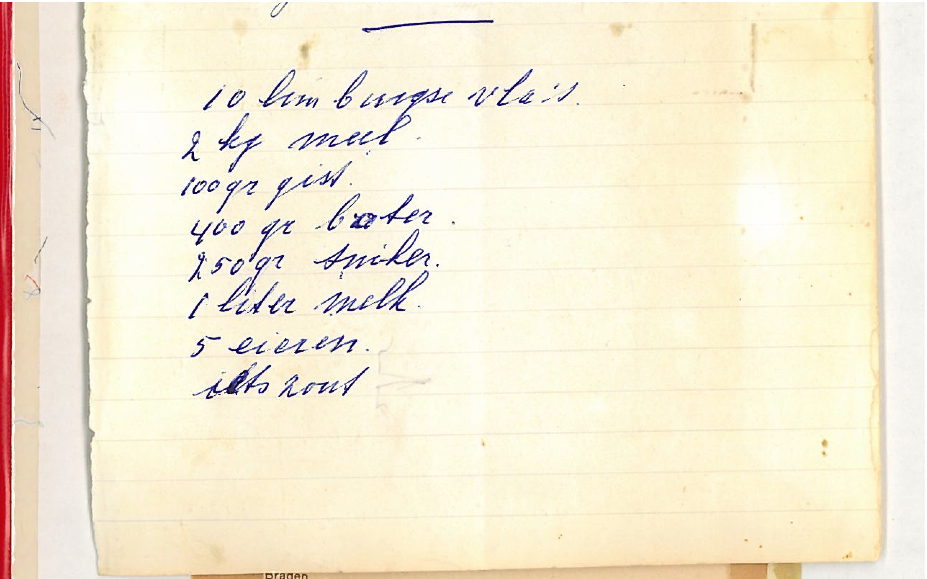 10 limburgse vla's.
2 kg meel.
100 gr gist.
400 gr boter.
250 gr suiker.
1 liter melk.
5 eieren.
iets zout
Braden